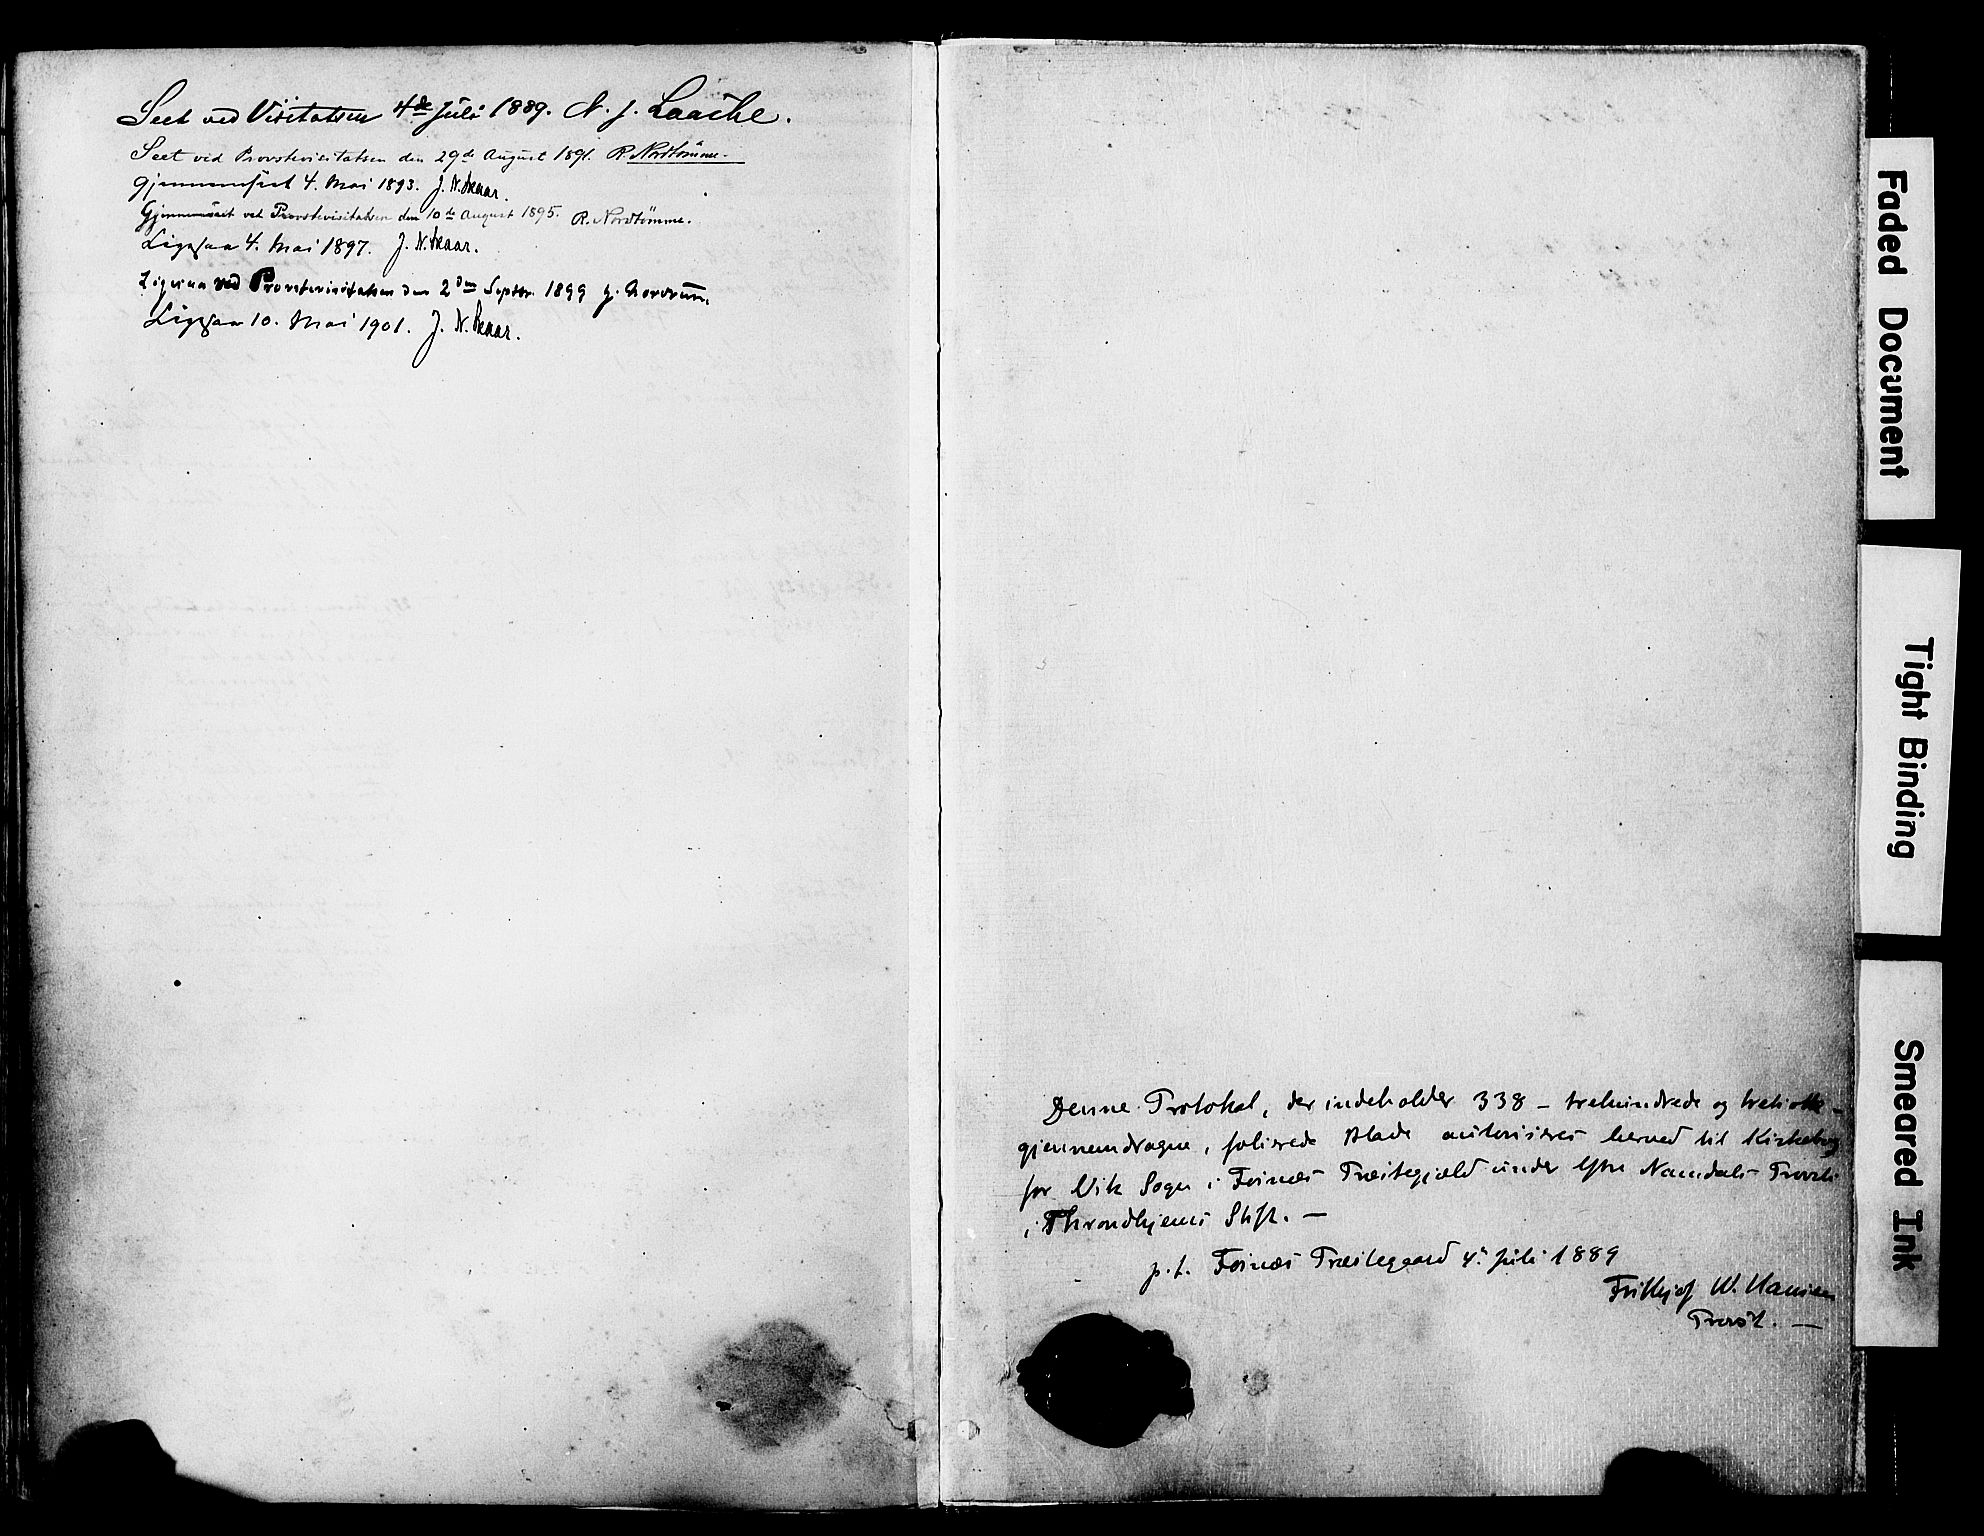 Seet ved Visitatsen 4de Juli 1889. N. J. Laache.
Seet ved Provstevisitatsen den 29de August 1891. R. Nordtömme.
Gjennemseet 4. Mai 1893. J. N. Skaar.
Gjennemseet ved Provstevisitatsen den 10de August 1895. R. Nordtömme.
Ligesaa 4. Mai 1897. J. N. Skaar.
Ligesaa ved Provstevisitatsen den 2den Septbr. 1899
Ligesaa 10. Mai 1901. J. N. Skaar.
Denne Protokol, der indeholder 338 – trehundrede og tretiotte –
gjennemdragne, folierede Blade autoriseres herved til Kirkebog
for Vik Sogn i Fosnæs Præstegjæld under Ytre Namdals Provsti
i Throndhjems Stift. —
p. t. Fosnæs Præstegaard 4. Juli 1889
Frithjof W. Hansen
Provst. —
Faded Document
Tight Binding
Smeared Ink